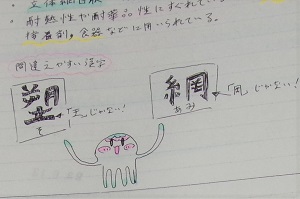 ・立体網目状
・耐熱性や耐薬品性にすぐれている。
接着剤、食器などに用いられている。
間違えやすい漢字
塑
そ
「王」じゃない!
網
あみ
「岡」じゃない!